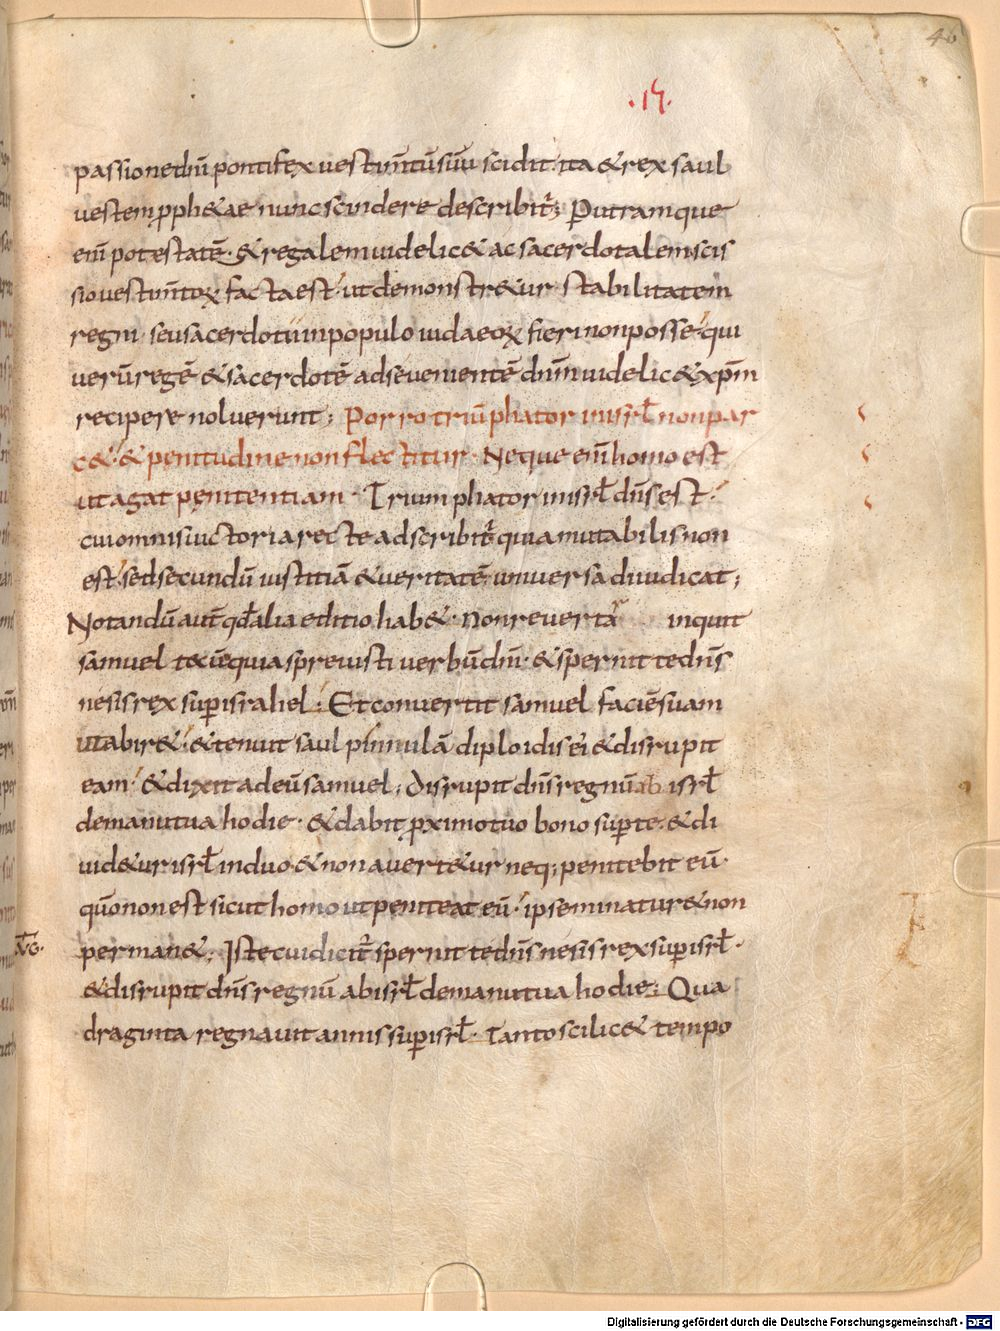 46
·15·
passione dn̄i pontifex uestim̄tū suū scidit. ita & rex saul
uestem ꝓph&ae nunc scindere describit᷑; Per utramque
eni̅ potestatē · & regalem uidelic& ac sacerdotalem scis
sio uestim̄toꝝ facta est · ut demonstr&ur stabilitatem
regni · seu sacerdotii in populo iudaeoꝝ fieri non posse · qui
uerū regē & sacerdotē ad se uenientē dn̄m uidelic& xp̄m
recipere noluerunt; Porro triūphator in isrł non par
c& · & penitudine non flectitur · Neque eni̅ homo est
ut agat penitentiam · Triumphator in isrł dn̄s est ·
cui omnis uictoria recte adscribit᷑ quia mutabilis non
est · sed secundū iustitiā & ueritatē uniuersa diiudicat;
Notandū aut̄ qđ alia editio hab& · Non reuertar̄ inquit
samuel tecū quia spreuisti uerbū dn̄i · & spernit te dn̄s
ne sis rex suꝑ israhel · Et conuertit samuel faciē suam
ut abir& · & tenuit saul pinnulā diploidis ei & disrupit
eam · & dixit ad eū samuel; Disrupit dn̄s regnū ab isrł
de manu tua hodie · & dabit ꝓximo tuo bono suꝑ te · & di
uid&ur isrł in duo & non auert&ur neq; penitebit eū ·
quō non est sicut homo ut peniteat eū · ipse minatur & non
perman&; Iste cui dicit᷑ spernit te dn̄s ne sis rex suꝑ isrł ·
& disrupit dn̄s regnū ab isrł de manu tua hodie; Qua
draginta regnauit annis suꝑ isrł · Tanto scilic& tempo
Digitalisierung gefördert durch die Deutsche Forschungsgemeinschaft - DFG